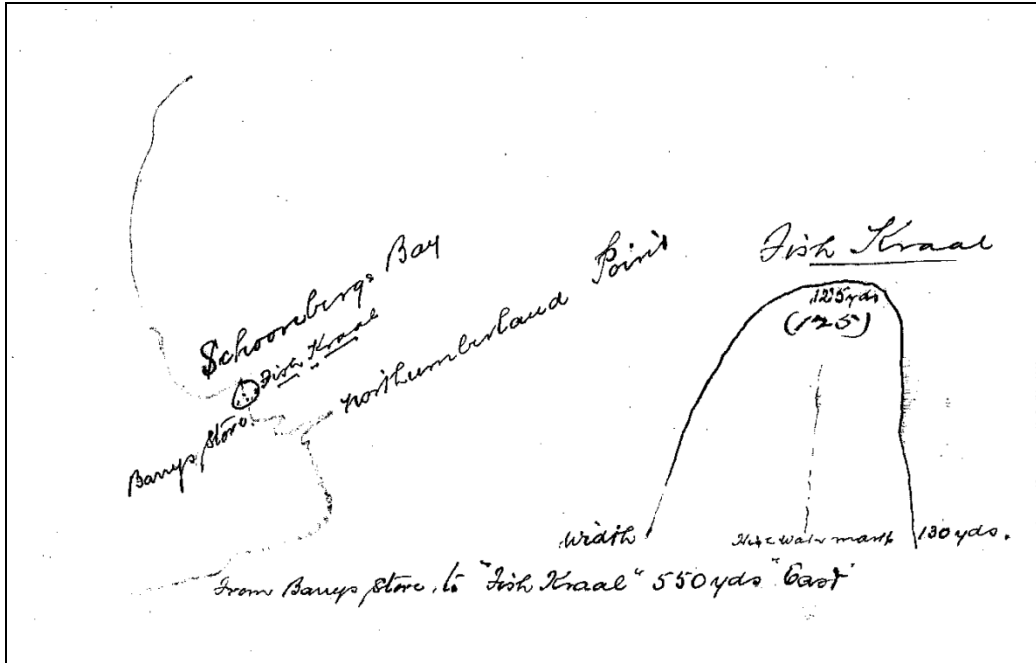 Schoombergs Bay
Fish Kraal
Barrys Store
Northumberland Point
Fish Kraal
125 yds
(125)
Width
High Water mark
130 yds.
From Barrys Store, to "Fish Kraal" 550 yds "East"